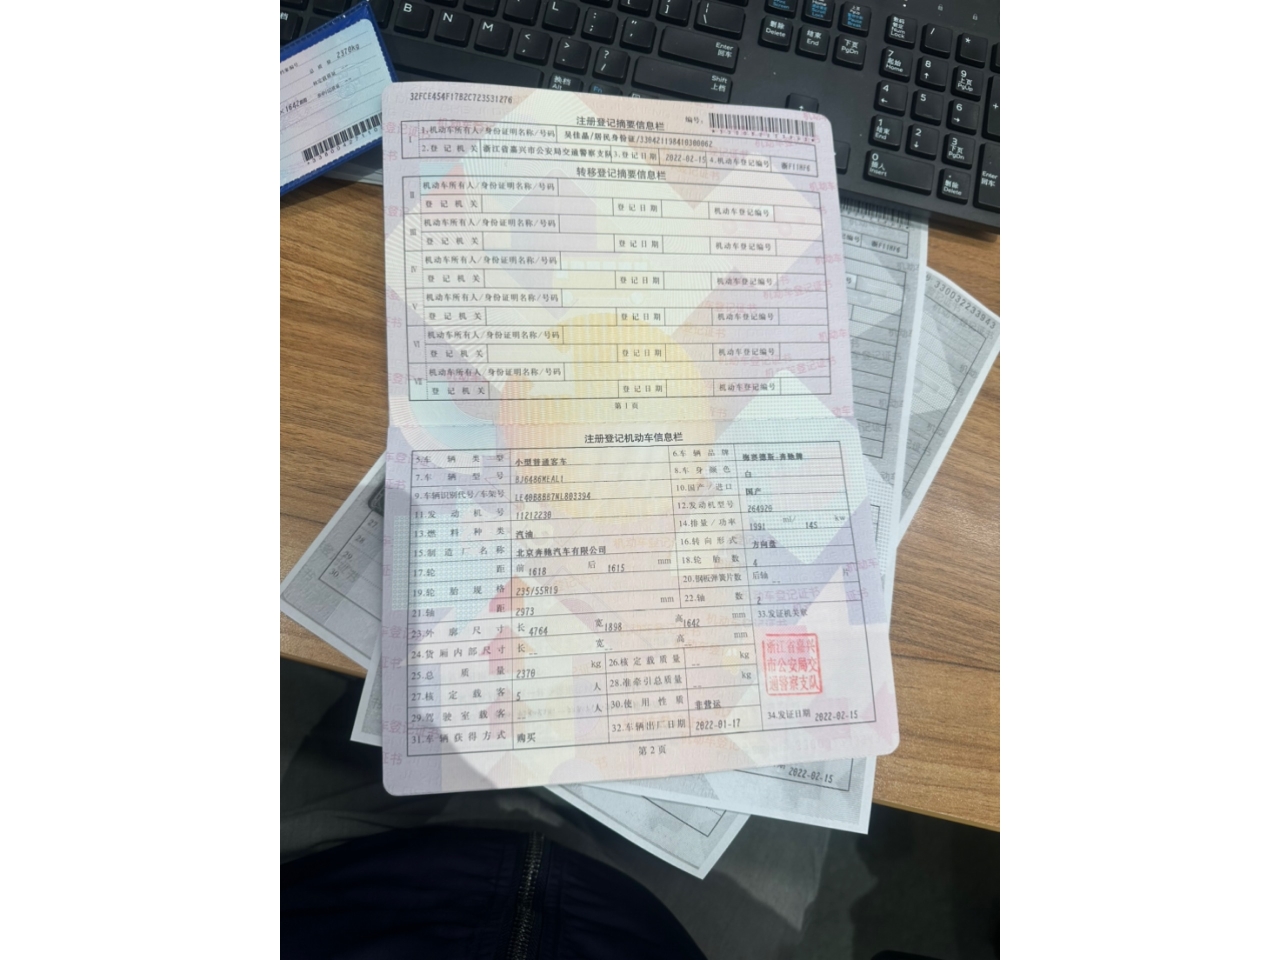 32FCE454F1782C723531276
注册登记摘要信息栏
编号:
I
1.机动车所有人/身份证明名称/号码 吴佳晶/居民身份证/330421198410300062
2.登记机关 浙江省嘉兴市公安局交通警察支队 3.登记日期 2022-02-15 4.机动车登记编号
转移登记摘要信息栏
II 机动车所有人/身份证明名称/号码
登记机关 登记日期 机动车登记编号
III 机动车所有人/身份证明名称/号码
登记机关 登记日期 机动车登记编号
IV 机动车所有人/身份证明名称/号码
登记机关 登记日期 机动车登记编号
V 机动车所有人/身份证明名称/号码
登记机关 登记日期 机动车登记编号
VI 机动车所有人/身份证明名称/号码
登记机关 登记日期 机动车登记编号
VII 机动车所有人/身份证明名称/号码
登记机关 登记日期 机动车登记编号
第1页
注册登记机动车信息栏
5.车辆类型 小型普通客车 6.车辆品牌 梅赛德斯-奔驰牌
7.车辆型号 BJ6486MEAL1 8.车身颜色 白
9.车辆识别代号/车架号 LE40B8BB7NL803394 10.国产/进口 国产
11.发动机号 11212230 12.发动机型号 264920
13.燃料种类 汽油 14.排量/功率 1991 ml/ 145 kw
15.制造厂名称 北京奔驰汽车有限公司 16.转向形式 方向盘
17.轮距 前 1618 后 1615 mm 18.轮胎数 4
19.轮胎规格 235/55R19 20.钢板弹簧片数 后轴 -- 片
21.轴距 2973 mm 22.轴数 2
23.外廓尺寸 长 4764 宽 1898 高 1642 mm 33.发证机关章
24.货厢内部尺寸 长 -- 宽 -- 高 -- mm
25.总质量 2370 kg 26.核定载质量 -- kg
27.核定载客 5 人 28.准牵引总质量 -- kg
29.驾驶室载客 -- 人 30.使用性质 非营运
31.车辆获得方式 购买 32.车辆出厂日期 2022-01-17 34.发证日期 2022-02-15
浙江省嘉兴
市公安局交
通警察支队
第2页
2022-02-15
330032233943
2370kg
Enter
回车
Shift
上档
Delete
End
PgDn
Num
Lock